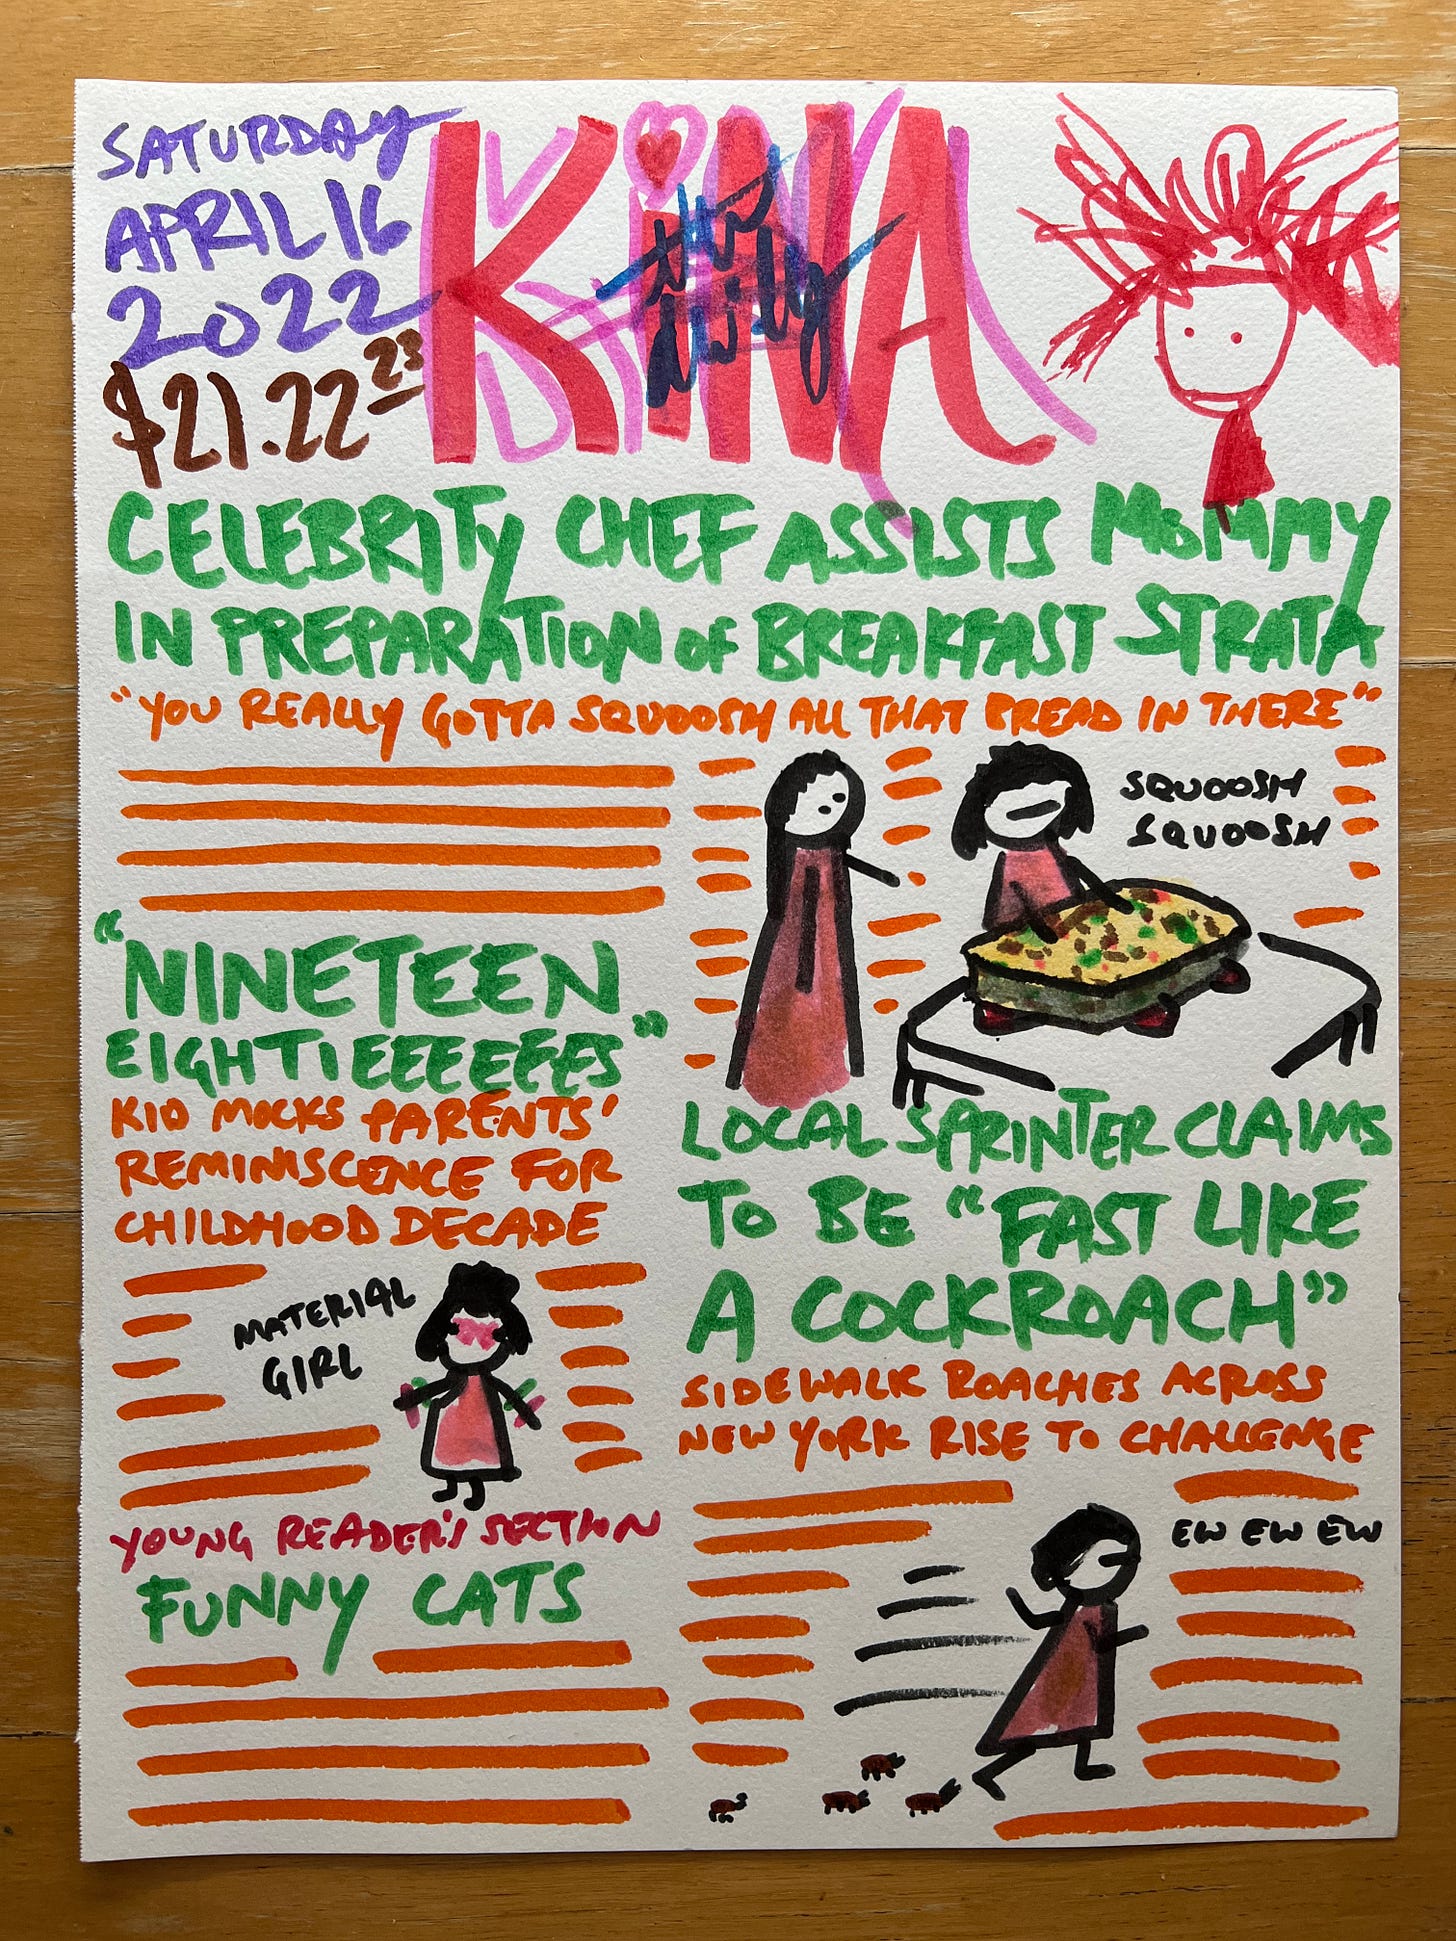 SATURDAY
APRIL 16
2022
$21.22 23
KiNA
the daily
CELEBRITY CHEF ASSISTS MOMMY
IN PREPARATION OF BREAKFAST STRATA
"YOU REALLY GOTTA SQUOOSH ALL THAT BREAD IN THERE"
SQUOOSH
SQUOOSH
"NINETEEN
EIGHTIEEEEEEES"
KID MOCKS PARENTS'
REMINISCENCE FOR
CHILDHOOD DECADE
MATERIAL
GIRL
YOUNG READER'S SECTION
FUNNY CATS
LOCAL SPRINTER CLAIMS
TO BE "FAST LIKE
A COCKROACH"
SIDEWALK ROACHES ACROSS
NEW YORK RISE TO CHALLENGE
EW EW EW